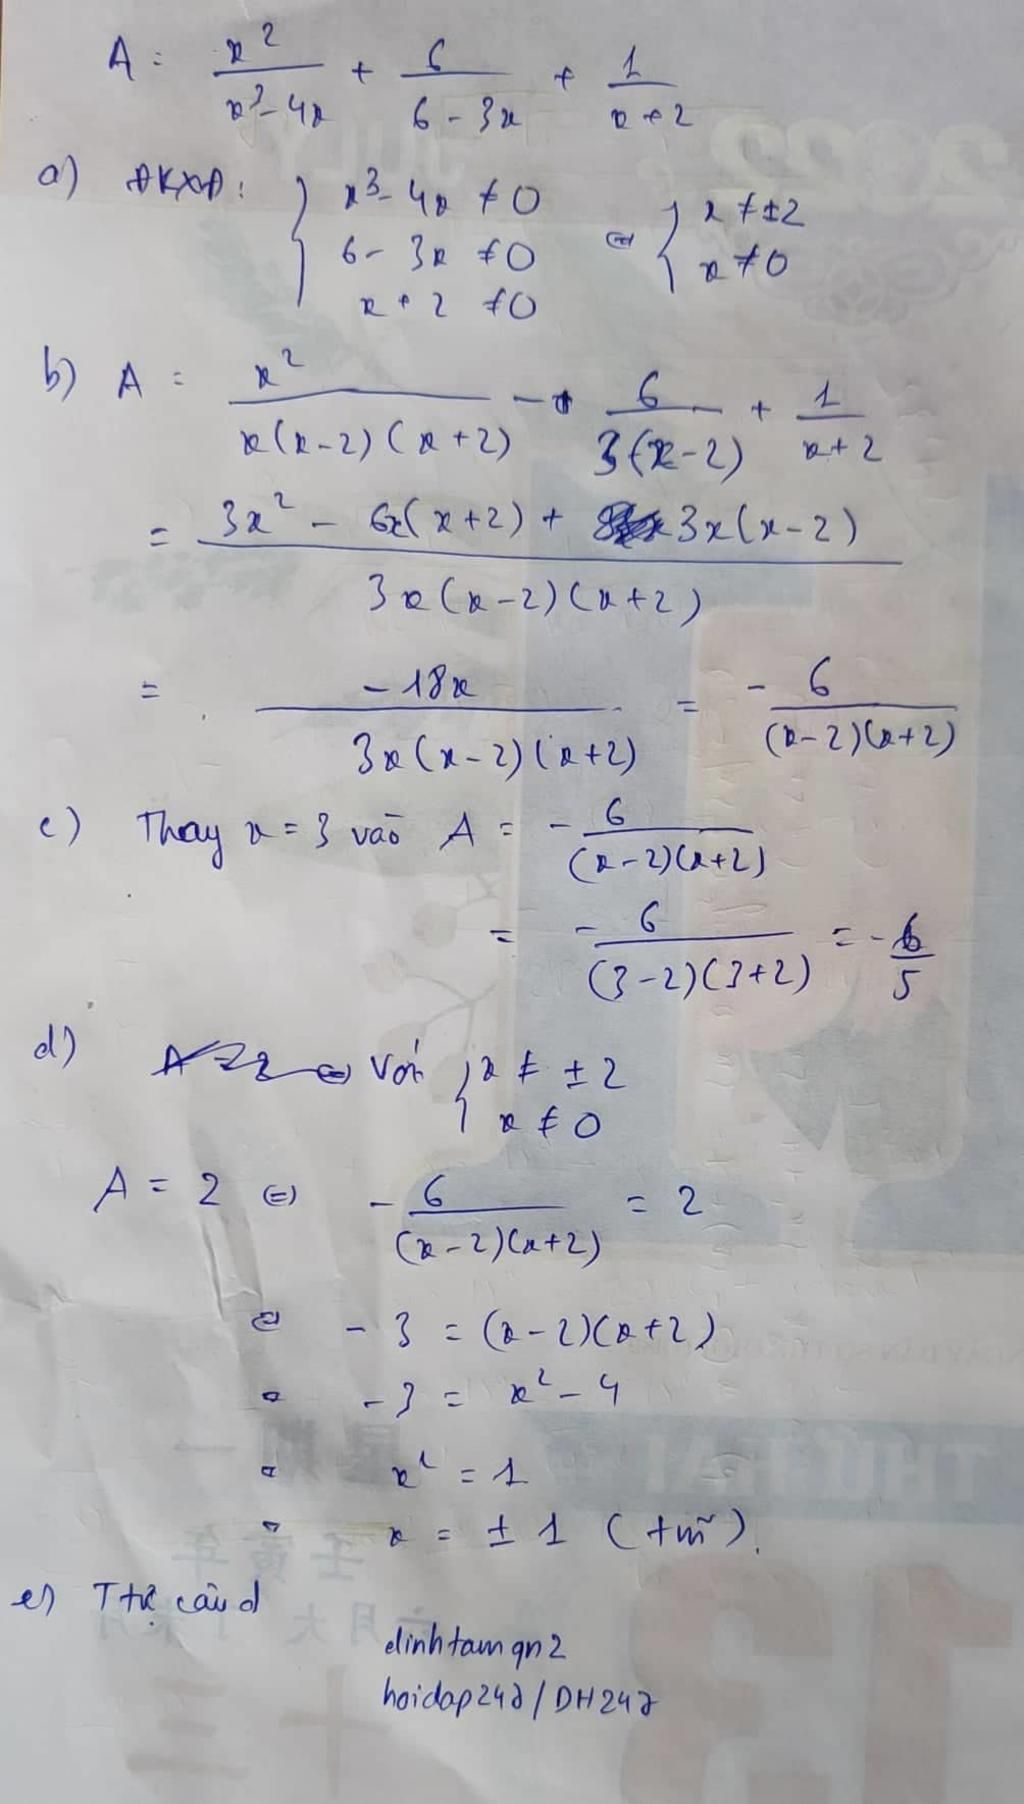 A = x²/(x³-4x) + 6/(6-3x) + 1/(x+2)
a) ĐKXĐ: { x³-4x ≠ 0
6-3x ≠ 0
x+2 ≠ 0
⇔ { x ≠ ±2
x ≠ 0
b) A = x²/(x(x-2)(x+2)) - 6/(3(x-2)) + 1/(x+2)
= (3x² - 6x(x+2) + 3x(x-2))/(3x(x-2)(x+2))
= -18x/(3x(x-2)(x+2)) = -6/((x-2)(x+2))
c) Thay x = 3 vào A = -6/((x-2)(x+2))
= -6/((3-2)(3+2)) = -6/5
d) Với { x ≠ ±2
x ≠ 0
A = 2 ⇔ -6/((x-2)(x+2)) = 2
⇔ -3 = (x-2)(x+2)
⇔ -3 = x²-4
⇔ x² = 1
⇔ x = ±1 (tm)
e) Ttự câu d
dinhtamqn2
hoidap247/DH247